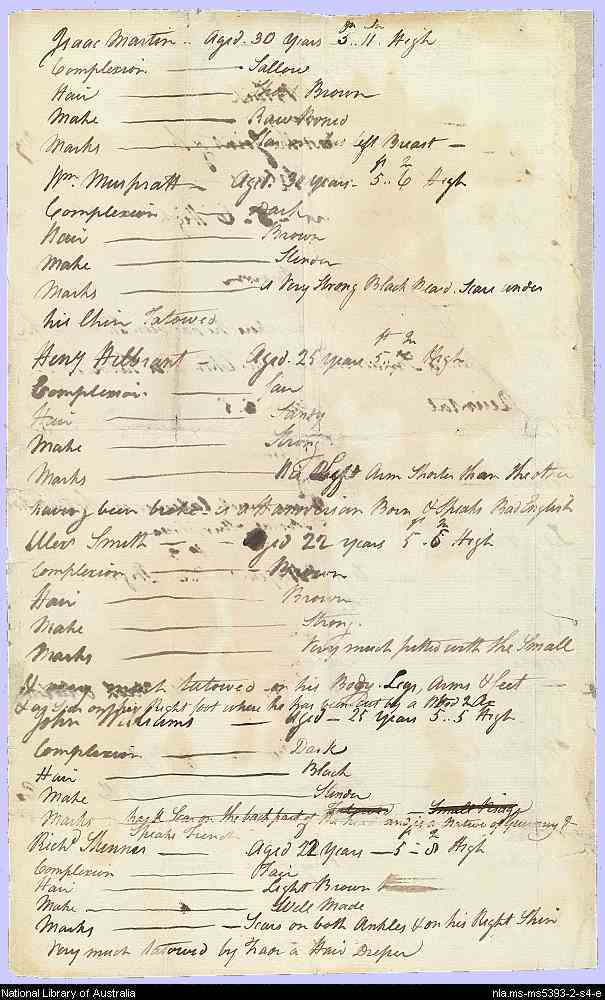 Isaac Martin .. Aged. 30 Years 5. 11. High
Complexion Sallow
Hair Brown
Make Raw Boned
Marks Left Breast
Wm. Muspratt Aged. 30 Years 5.. 6 High
Complexion Dark
Hair Brown
Make Slender
Marks a Very Strong Black Beard. Scars under
his Chin Tatowed
Heny Hilbrant Aged. 25 Years 5.. High
Complexion Fair
Hair Sandy
Make Strong
Marks Left Arm Shorter than the other
having been broke is a Hanoverian Born & Speaks Bad English
Smith Aged 22 years 5.. High
Complexion Brown
Hair Brown
Make Strong.
Marks Very much pitted with the Small
tatowed on his Body. Legs, Arms & feet
on his Right foot where he has been cut by a Wood Ax
John Williams Aged 25 Years 5.. 5 High
Complexion Dark
Hair Black
Make Slender
Marks has a Scar on the back part of and is a Native of Guernsey &
Speaks French
Richd Skinner Aged 22 Years 5 .. 8 High
Complexion Fair
Hair Light Brown
Make Well Made
Marks Scars on both Ankles & on his Right Shin
Very much tatowed by a Hair Dresser
National Library of Australia
nla.ms-ms5393-2-s4-e